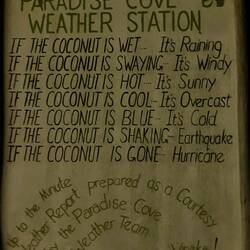 PARADISE COVE
WEATHER STATION
IF THE COCONUT IS WET-- It's Raining
IF THE COCONUT IS SWAYING-- It's Windy
IF THE COCONUT IS HOT-- It's Sunny
IF THE COCONUT IS COOL-- It's Overcast
IF THE COCONUT IS BLUE-- It's Cold
IF THE COCONUT IS SHAKING-- Earthquake
IF THE COCONUT IS GONE-- Hurricane
Up to the Minute
Weather Report prepared as a Courtesy
by the Paradise Cove
Weather Team